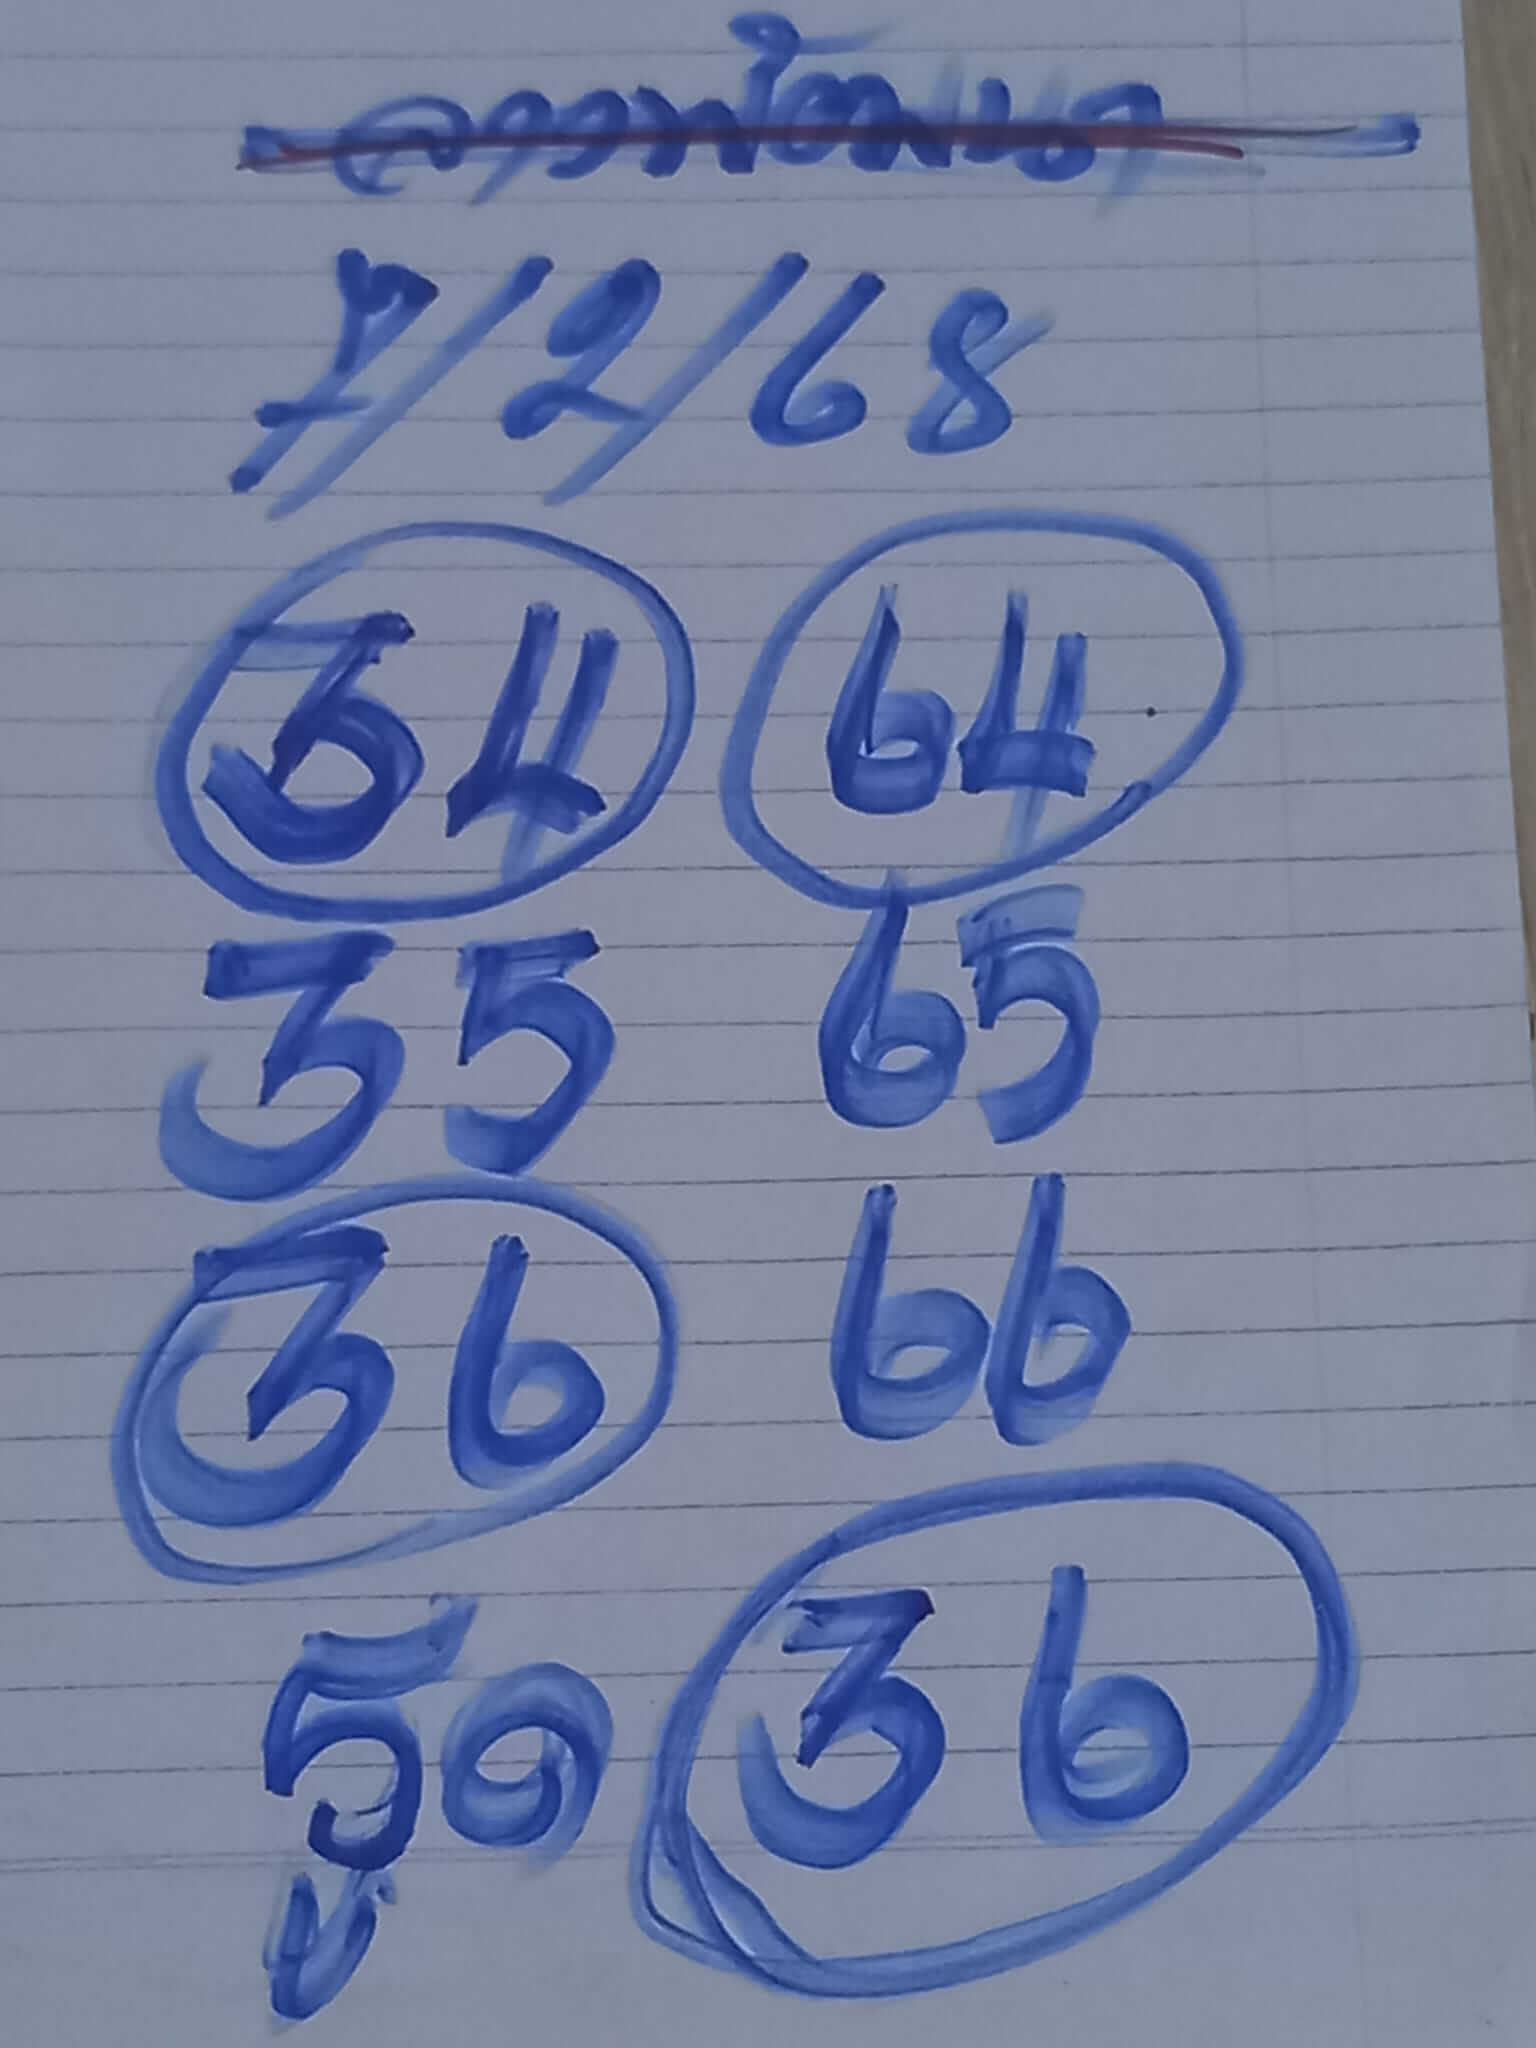 ลาวพัฒนา
7/2/68
34 64
35 65
36 66
รูด 36